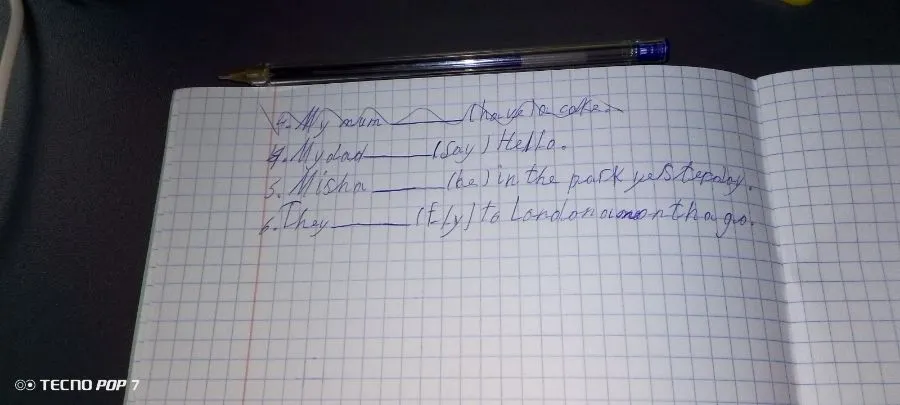 4. My mum ______ (have) a cake.
4. My dad ______ (say) Hello.
5. Misha ______ (be) in the park yesterday.
6. They ______ (fly) to London a month ago.
TECNO POP 7